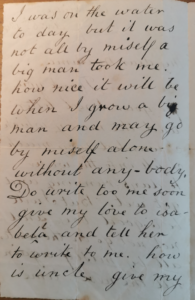 I was on the water
to day but it was
not all by miself a
big man took me.
how nice it will be
when I grow a big
man and may go
by miself alone
without any-body.
Do write too me soon
give my love to isa
bela and tell her
to write to me. how
is uncle give my